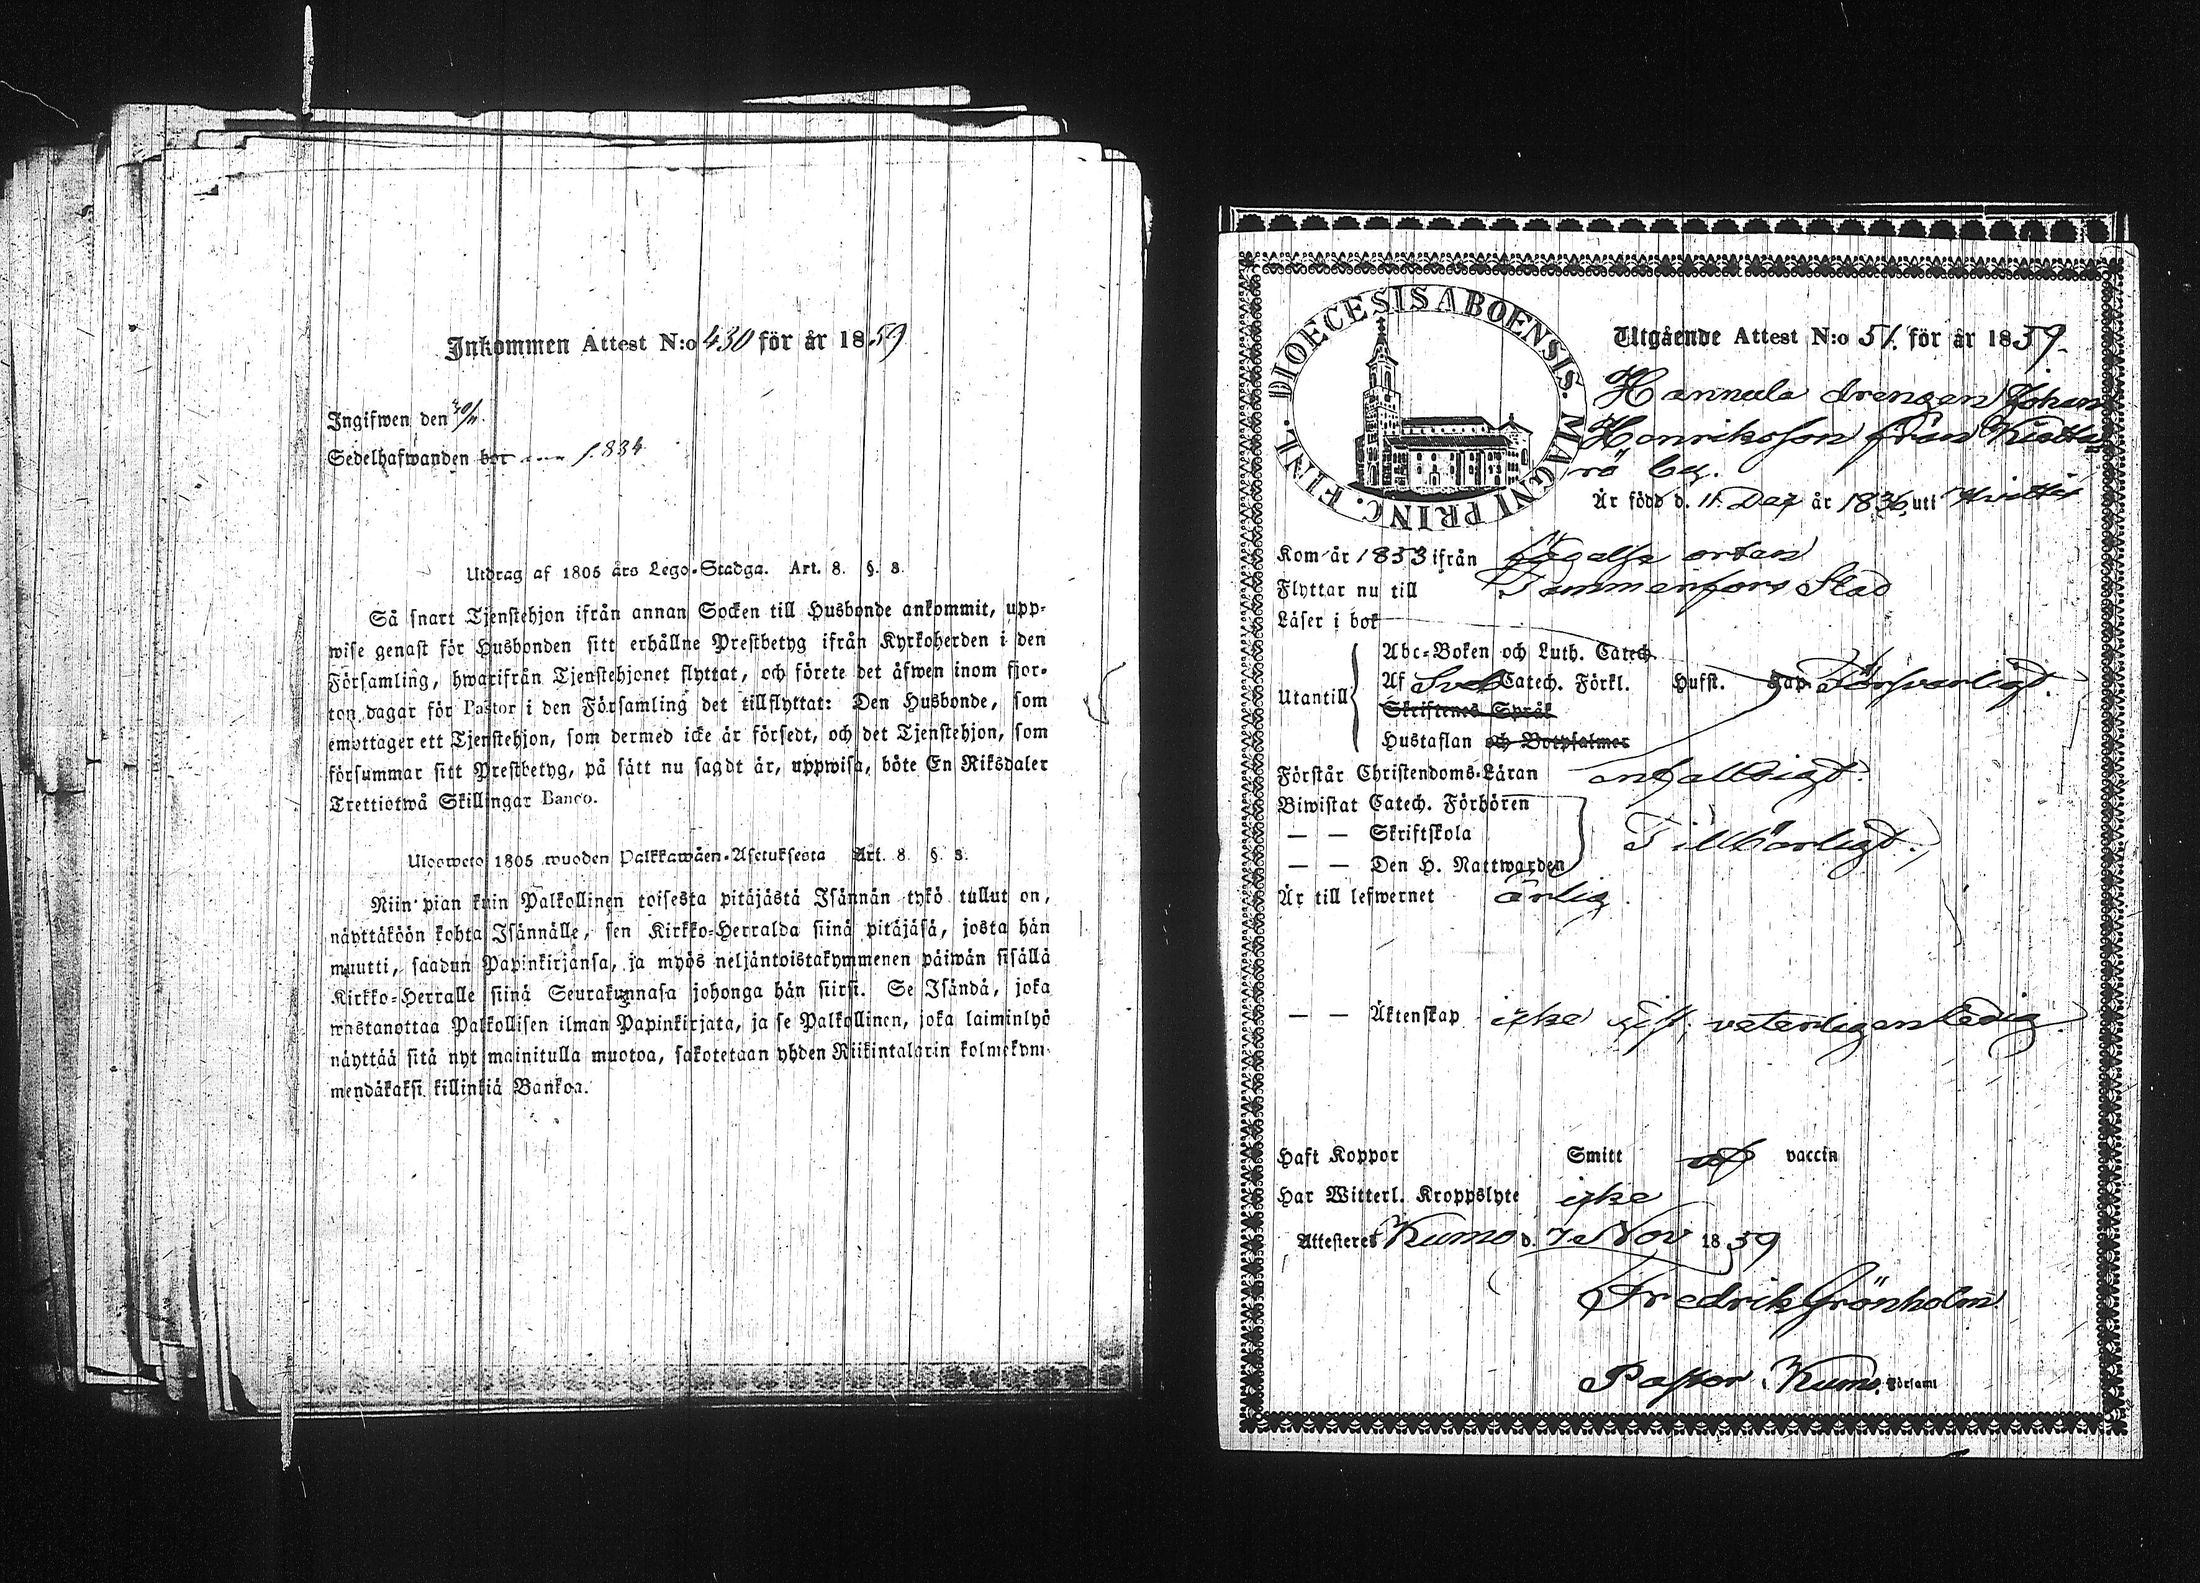 Inkommen Attest N:o 430 för år 1859
Ingifwen den 30/11.
Sedelhafwanden bor f. 834
Utdrag af 1805 års Lego-Stadga. Art. 8. §. 8.
Så snart Tjenstehjon ifrån annan Socken till Husbonde ankommit, upp-
wise genast för Husbonden sitt erhållne Prestbetyg ifrån Kyrkoherden i den
Församling, hwarifrån Tjenstehjonet flyttat, och förete det äfwen inom fjor-
ton dagar för Pastor i den Församling det tillflyttat: Den Husbonde, som
emottager ett Tjenstehjon, som dermed icke är försedt, och det Tjenstehjon, som
försummar sitt Prestbetyg, på sätt nu sagdt är, uppwisa, böte En Riksdaler
Trettiotwå Skillingar Banco.
Ulosweto 1805 wuoden Palkkawäen-Asetuksesta Art. 8. §. 8.
Niin pian kuin Palkollinen toisesta pitäjästä Isännän tykö tullut on,
näyttäköön kohta Isännälle, sen Kirkko-Herralda siinä pitäjäsä, josta hän
muutti, saadun Papinkirjansa, ja myös neljäntoistakymmenen päiwän sisällä
Kirkko-Herralle siinä Seurakunnasa johonga hän siirsi. Se Isändä, joka
wastanottaa Palkollisen ilman Papinkirjata, ja se Palkollinen, joka laiminlyö
näyttää sitä nyt mainitulla muotoa, sakotetaan yhden Riikintalarin kolmekym-
mendäkaksi killinkiä Bankoa.
DIOECESIS ABOENSIS. MAGNI PRINC. FINL.
Utgående Attest N:o 51. för år 1859.
Hannula drengen Johan
Henriksson från Kiettu
rö by.
Är född d. 11 Dez år 1836, uti Hvittis
Kom år 1853 ifrån födelse orten
Flyttar nu till Tammerfors Stad
Läser i bok
Abc-Boken och Luth. Catech.
Utantill Af Sveb Catech. Förkl. Husst. Gap. Försvarligt.
Skriftenes Språk
Hustaflan och Botpsalmer
Förstår Christendoms-Läran enfaldigt.
Biwistat Catech. Förhören
— — Skriftskola Tillbörligt.
— — Den H. Nattwarden
Är till lefwernet ärlig
— — Äktenskap icke gift, veterligen ledig.
Haft Koppor Smitt af vaccin
Har Witterl. Kroppslyte icke
Attesteres Kumo d. 7 Nov 1859
Fredrik Grönholm
Pastor i Kumo Församl